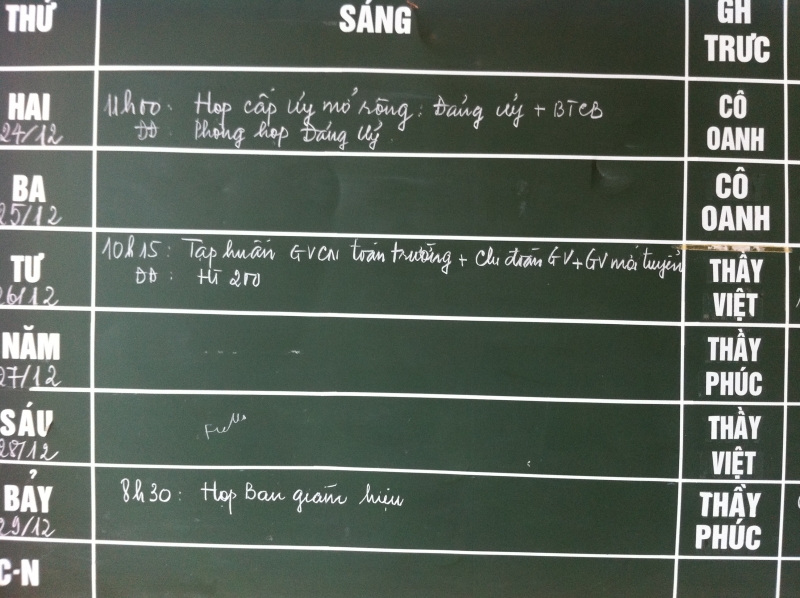 THỨ SÁNG GH TRỰC
HAI 24/12 11h00: Họp cấp ủy mở rộng: Đảng ủy + BTCB CÔ OANH
ĐĐ: Phòng họp Đảng ủy.
BA 25/12 CÔ OANH
TƯ 26/12 10h15: Tập huấn GVCN toàn trường + Chi đoàn GV + GV mới tuyển THẦY VIỆT
ĐĐ: HT 200
NĂM 27/12 THẦY PHÚC
SÁU 28/12 THẦY VIỆT
BẢY 29/12 8h30: Họp Ban giám hiệu THẦY PHÚC
C-N